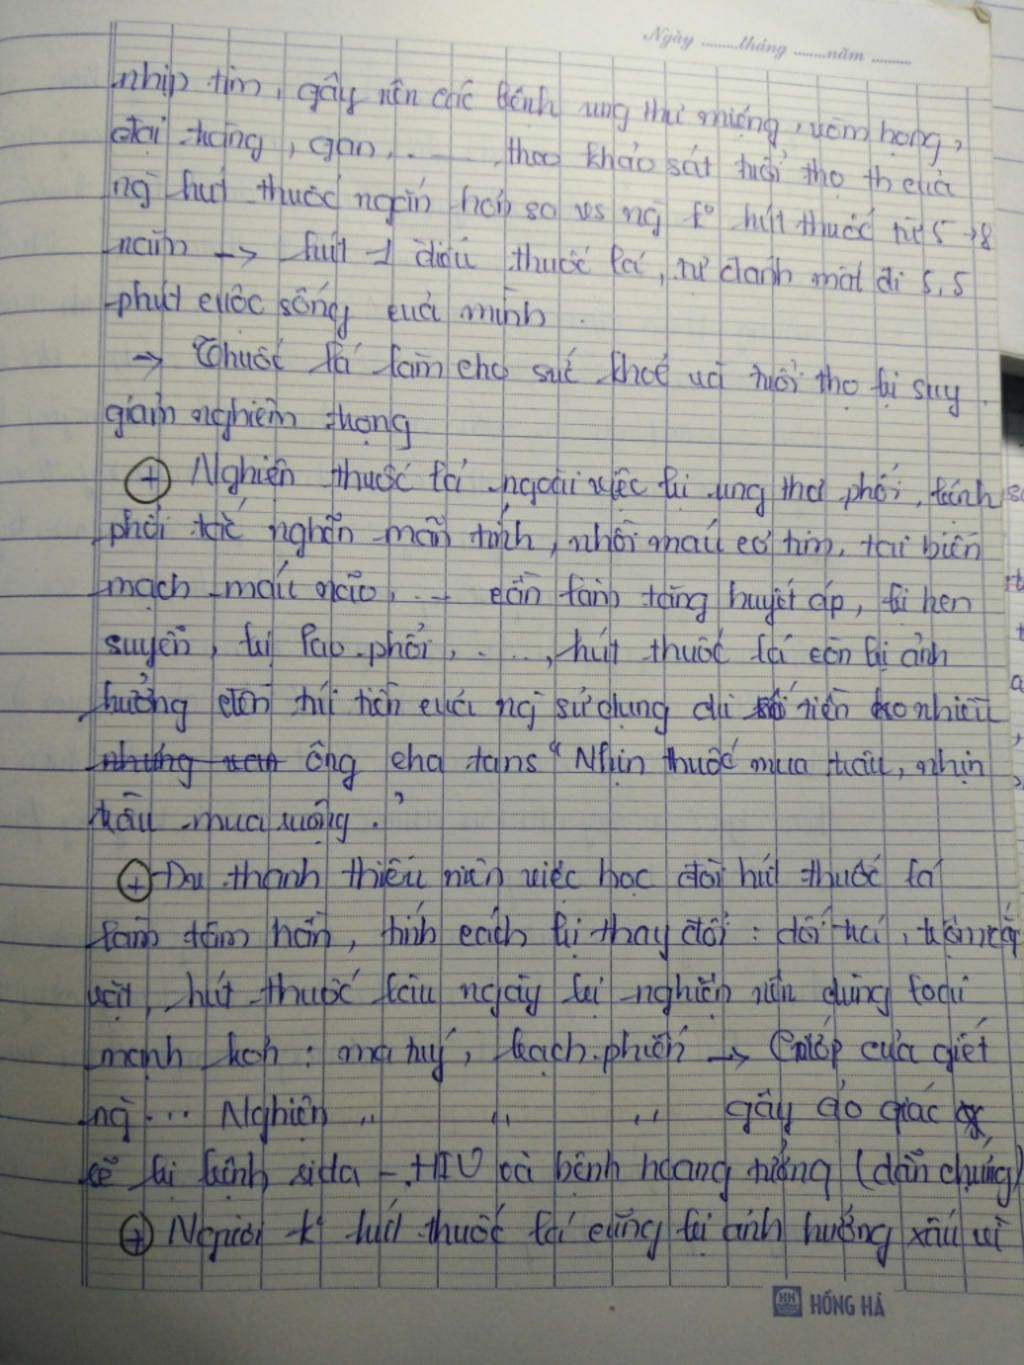 Ngày .........tháng .........năm .........
nhịp tim, gây nên các bệnh ung thư miệng, vòm họng,
đại tràng, gan, ....... theo khảo sát tuổi thọ của
ng hút thuốc ngắn hơn so vs ng k° hút thuốc từ 5 → 8
năm → hút 1 điếu thuốc lá, tự đánh mất đi 5,5
phút cuộc sống của mình.
→ Thuốc lá làm cho sức khoẻ và tuổi thọ bị suy
giảm nghiêm trọng
(+) Nghiện thuốc lá ngoài việc bị ung thư phổi, bệnh
phổi tắc nghẽn mãn tính, nhồi máu cơ tim, tai biến
mạch máu não, ... còn làm tăng huyết áp, bị hen
suyễn, bị lao phổi, ...., hút thuốc lá còn bị ảnh
hưởng đến túi tiền của ng sử dụng dù số tiền ko nhiều
ông cha “Nhịn thuốc mua trâu, nhịn
trầu mua ruộng.”
(+) thanh thiếu niên việc học đòi hút thuốc lá
làm tâm hồn, tính cách bị thay đổi: dối trá, trộm cắp
vặt, hút thuốc lâu ngày bị nghiện nên dùng loại
mạnh hơn: ma tuý, bạch phiến → Cướp của giết
ng ... Nghiện ,, ,, ,, gây ảo giác
sẽ bị bệnh sida - HIV và bệnh hoang tưởng (dẫn chứng)
(+) Người k° hút thuốc lá cũng bị ảnh hưởng xấu vì
HỒNG HÀ